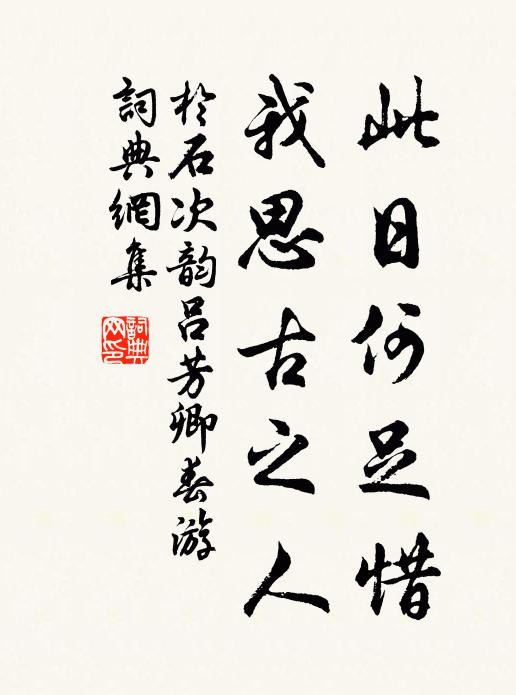 此日何足惜
我思古之人
於石次韵吕芳卿春游
詞典網集
詞典
网印